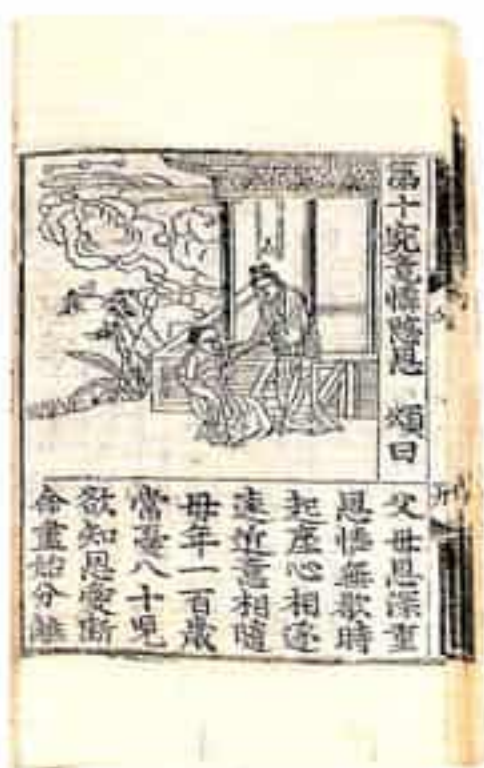 第十究竟憐愍恩 頌曰
父母恩深重
恩憐無歇時
起座心相逐
遠近意相隨
母年一百歲
常憂八十兒
欲知恩愛斷
命盡始分離